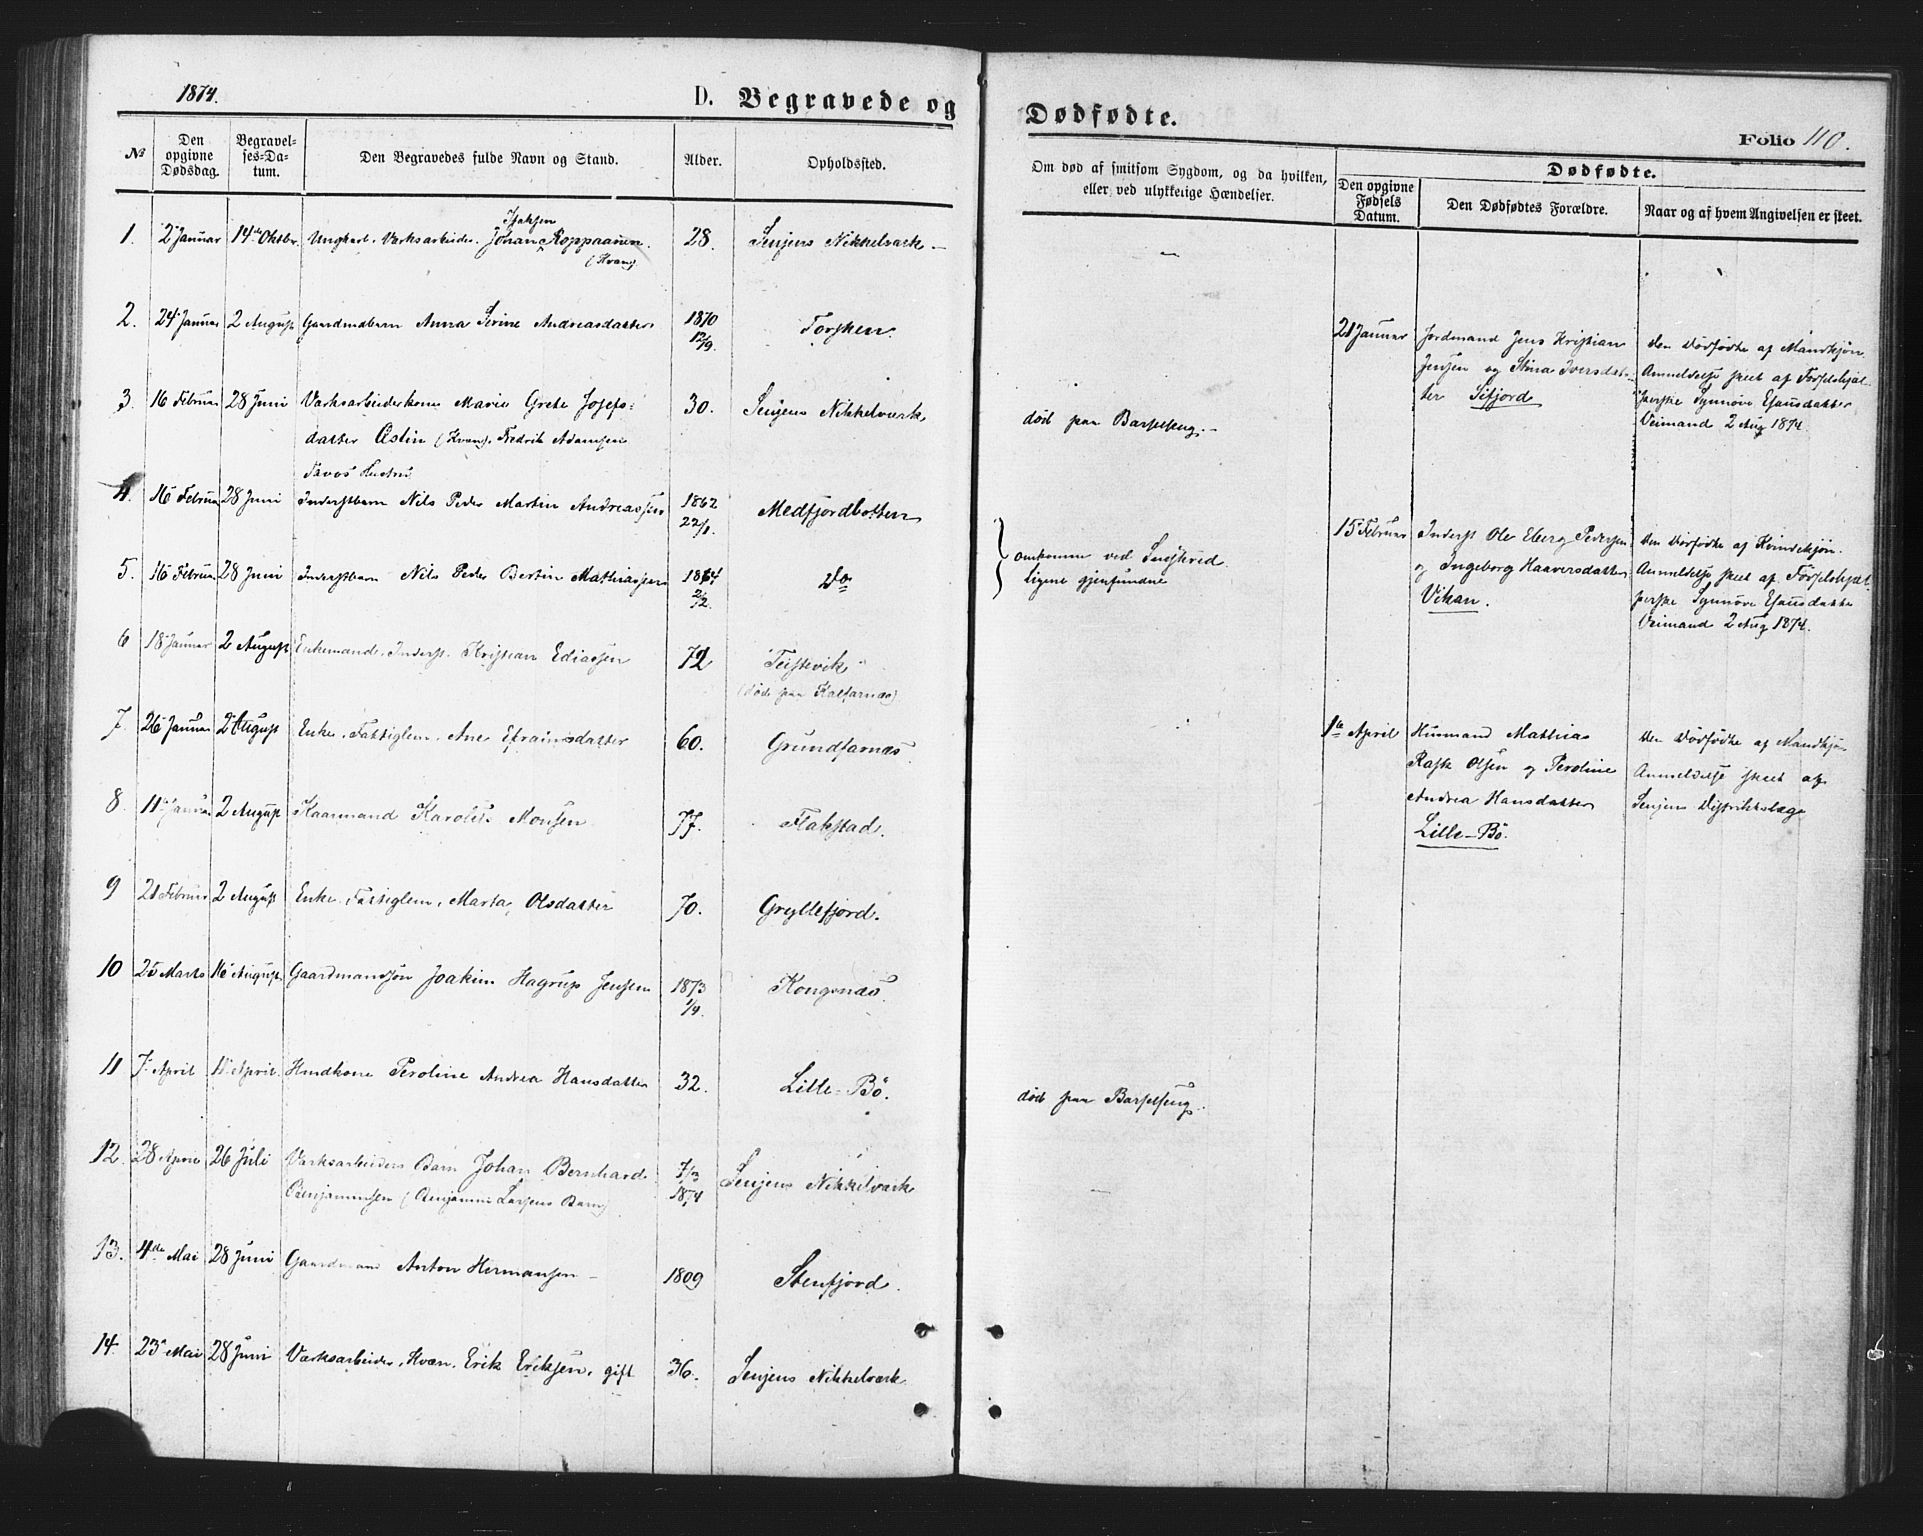 1874.
D. Begravede og
Dødfødte.
Folio 110.
№
Den opgivne Dødsdag.
Begravelses-Datum.
Den Begravedes fulde Navn og Stand.
Alder.
Opholdssted.
Om død af smitsom Sygdom, og da hvilken,
eller ved ulykkelige Hændelser.
Dødfødte.
Den opgivne Fødsels Datum.
Den Dødfødtes Forældre.
Naar og af hvem Angivelsen er skeet.
Isaksen
1. 2 Januar 14de Oktbr. Ungkarl. Værksarbeider. Johan Roppaanen. 28. Senjens Nikkelværk –
(Kvæn)
2. 24 Januar 2 August Gaardmdbarn Anna Serine Andreasdatter 1870 12/9. Torsken.
3. 16 Februar 28 Juni Værksarbeiderkone Marie Grete Josefs- 30. Senjens Nikkelværk
datter Østin (Kvæn), Fredrik Adamsen
Tavos Hustru
død paa Barselseng. –
4. 16 Februar 28 Juni Inderstbarn Nils Peder Martin Andreassen 1862 22/1. Medfjordbotten
5. 16 Februar 28 Juni Inderstbarn Nils Peder Bertin Mathiassen 1864 2/12. Do
omkomne ved Sneskred.
ligene gjenfundne
6 18 Januar 2 August Enkemand, Inderst. Kristian Ediassen 72 Teistevik
(død paa Kalfarnæs)
7. 26 Januar 2 August Enke. Fattiglem. Ane Efraimsdatter 60. Grundfarnæs
8. 11 Januar 2 August Kaarmand Karolus Monsen 77. Flakstad.
9 21 Februar 2 August Enke. Fattiglem. Marta Olsdatter 70. Gryllefjord.
10 25 Marts 16 August Gaardmandssøn Joakim Hagrup Jensen 1873 1/9. Kongsnæs
11 7 April April. Hmdkone Peroline Andrea Hansdatter 32. Lille-Bö.
død paa Barselseng.
12. 28 April 26 Juli Værksarbeiders Barn Johan Bernhard 7/3 1874 Senjens Nikkelværk
Benjaminsen (Benjamin Larsens Barn)
13. 4de Mai 28 Juni Gaardmand Anton Hermansen – 1809 Stenfjord.
14. 23 Mai 28 Juni Værksarbeider, Kvæn. Erik Eriksen, gift 36. Senjens Nikkelværk
21 Januar Jordmand Jens Kristian
Jensen og Stina Iversdat-
ter Sifjord
den Dødfødte af Mandkjøn.
Anmeldelse skeet af Fødselshjæl-
perske Synnøve Esausdatter
Veimand 2 Aug 1874.
15 Februar Inderst Ole Eberg Pedersen
og Ingeborg Haaversdatter
Vikan.
den Dødfødte af Kvindekjøn.
Anmeldelse skeet af Fødselshjæl-
perske Synnøve Esausdatter
Veimand 2 Aug 1874.
1te April Husmand Mathias
Rask Olsen og Peroline
Andrea Hansdatter
Lille-Bö.
den Dødfødte af Mandkjøn
Anmeldelse skeet af
Senjens Distriktslæge